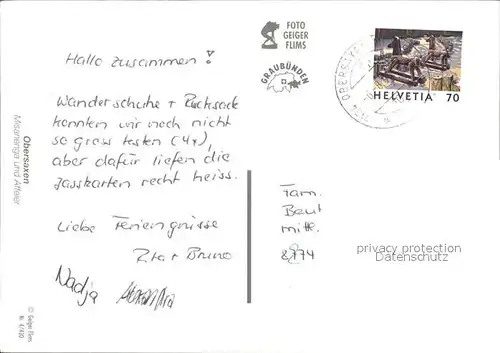 FOTO
GEIGER
FLIMS
GRAUBÜNDEN
OBERSAXEN
HELVETIA 70
Hallo zusammen!
Wanderschuhe + Rucksack
konnten wir noch nicht
so gross testen (4x),
aber dafür liefen die
Jasskarten recht heiss.
Liebe Feriengrüsse
Rita + Bruno
Nadja
Fam.
Beut
mitte.
8874
privacy protection
Datenschutz
Obersaxen
Misanenga und Affeier
© Geiger Flims